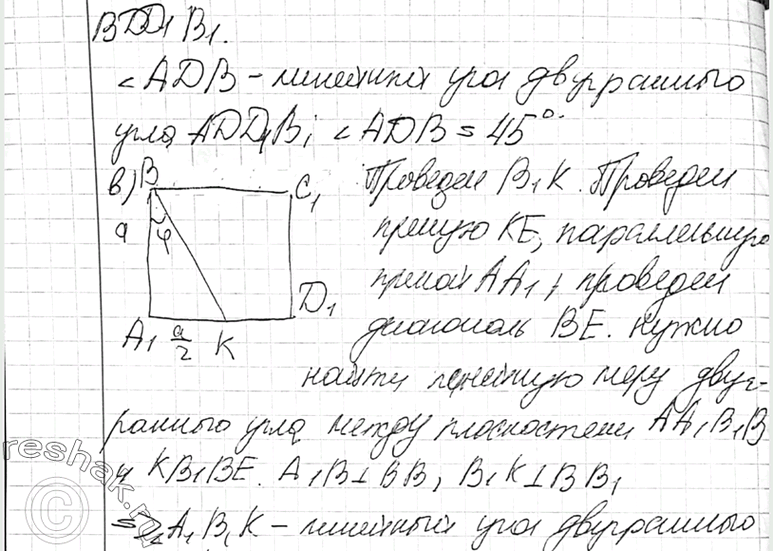 BDD₁B₁.
∠ADB – линейный угол двугранного
угла ADD₁B; ∠ADB = 45°.
в) B C₁ Проведем B₁K. Проведем
a φ прямую KE, параллельную
прямой AA₁, проведем
D₁ диагональ BE. Нужно
A₁ a/2 K
найти линейную меру двуг-
ранного угла между плоскостями AA₁B₁B
и KB₁BE. A₁B⊥BB, B₁K⊥BB₁
=> ∠A₁B₁K – линейный угол двугранного
reshak.ru
©